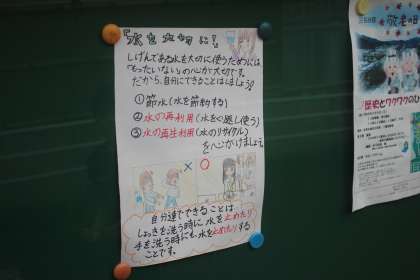 『水を大切に!』
しげんである水を大切に使うためには
「もったいない」の心が大切です。
だから、自分にできることはしましょう!
①節水(水を節約する)
②水の再利用(水をくり返し使う)
③水の再生利用(水のリサイクル)
を心がけましょう。
× ○
自分達でできることは
しょっきを洗う時に水を止めたり
手を洗う時にも、水を止めたりする
ことです。
敬老の日
歴史とワクワクのひ